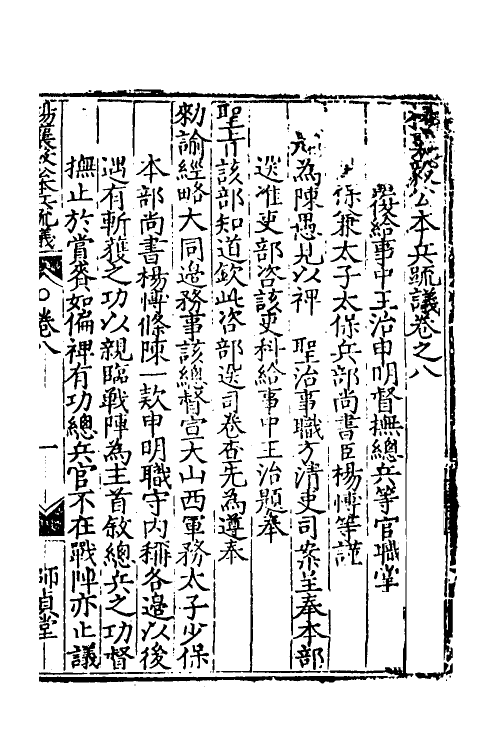 襄毅公本兵疏議卷之八
覆給事中王治申明督撫總兵等官職掌
保兼太子太保兵部尚書臣楊博等謹
為陳愚見以裨 聖治事職方清吏司案呈奉本部
送准吏部咨該吏科給事中王治題奉
聖旨該部知道欽此咨部送司卷查先為遵奉
勑諭經略大同邊務事該總督宣大山西軍務太子少保
本部尚書楊博條陳一款申明職守内稱各邊以後
遇有斬獲之功以親臨戰陣為主首敘總兵之功督
撫止於賞賚如偏裨有功總兵官不在戰陣亦止議
楊襄毅公本兵疏議
卷八
一
師貞堂